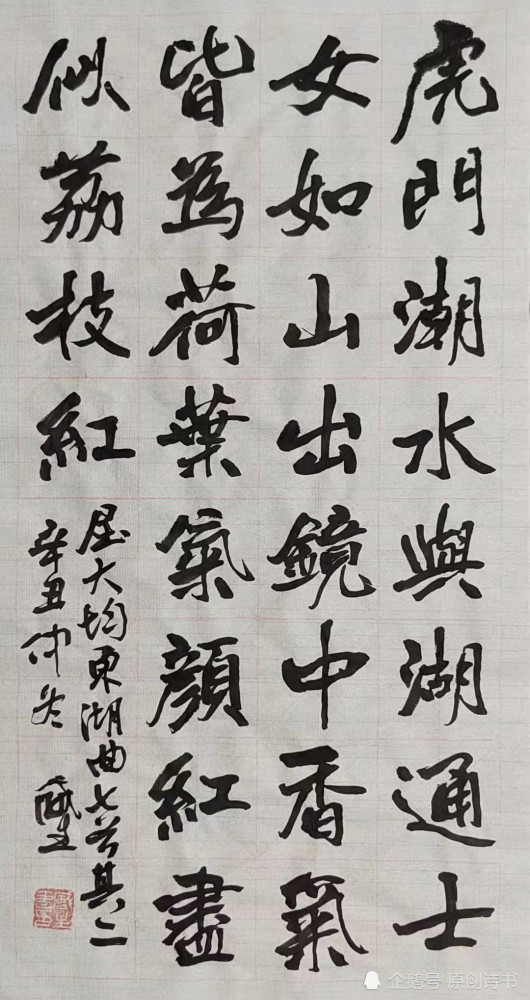 虎門潮水與湖通士
女如山出鏡中香氣
皆為荷葉氣顏紅盡
似荔枝紅
屈大均東湖曲七首其二
辛丑仲冬
企鹅号 原创诗书